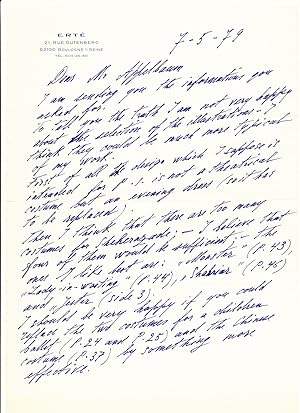 ERTÉ
21, RUE GUTENBERG
92100 BOULOGNE S/SEINE
7-5-79
Dear Mr Appelbaum
I am sending you the information you
asked for.
To tell you the truth I am not very happy
about the selection of the illustrations - I
think they could be much more typical
of my work.
First of all the design which I suppose is
intended for P. 1. is not a theatrical
costume but an evening dress (so it has
to be replaced).
Then I think that there are too many
costumes for Sheherazade; - I believe that
four of them would be sufficient; - the
ones I like best are: "Monster" (P. 43),
"Lady-in-waiting" (P. 44), "Shahriar" (P. 46),
and "Jester" (Side 3).
I should be very happy if you could
replace the two costumes for a children
ballet (P. 24 and P. 25) and the Chinese
costume (P. 37) by something more
effective.